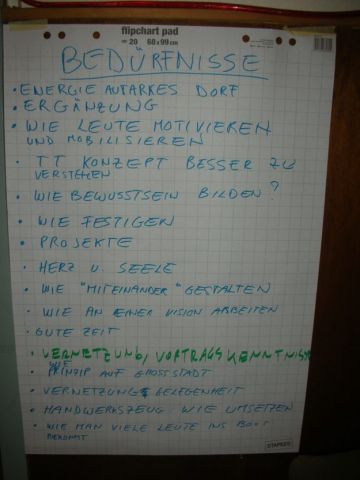 flipchart pad
20 68x99cm
BEDÜRFNISSE
• ENERGIE AUTARKES DORF
• ERGÄNZUNG
• WIE LEUTE MOTIVIEREN
UND MOBILISIEREN
• TT KONZEPT BESSER ZU
VERSTEHEN
• WIE BEWUSSTSEIN BILDEN?
• WIE FESTIGEN
• PROJEKTE
• HERZ U. SEELE
• WIE "MITEINANDER" GESTALTEN
• WIE AN EINER VISION ARBEITEN
• GUTE ZEIT
• VERNETZUNG, VORTRAGSKENNTNISSE
• WIE
PRINZIP AUF GROSSSTADT
• VERNETZUNGSGELEGENHEIT
• HANDWERKSZEUG WIE UMSETZEN
• WIE MAN VIELE LEUTE INS BOOT
BEKOMMT
STAPLES